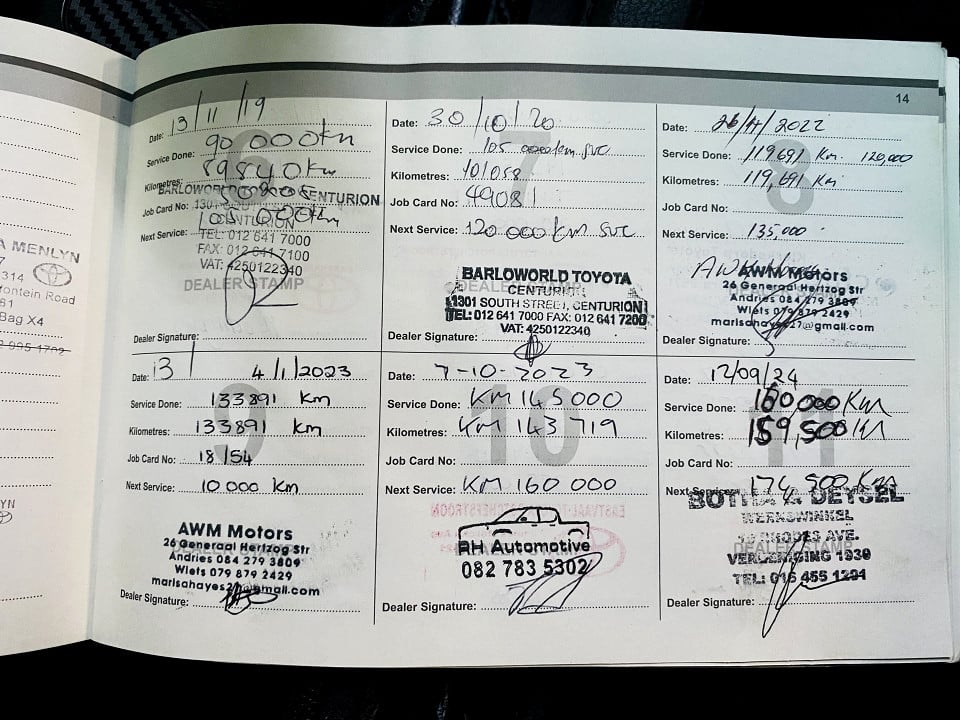 14
A MENLYN
7
314
ontein Road
81
Bag X4
6
Date: 13/11/19
Service Done: 90 000km
Kilometres: 89840km
BARLOWORLD CENTURION
Job Card No:
Next Service: 105 000km
CENTURION
TEL: 012 641 7000
FAX: 012 641 7100
VAT: 4250122340
DEALER STAMP
Dealer Signature:
7
Date: 30/10/20
Service Done: 105 000km SVC
Kilometres: 101058
Job Card No: 49081
Next Service: 120 000 km SVC
BARLOWORLD TOYOTA
CENTURION
1301 SOUTH STREET, CENTURION
TEL: 012 641 7000 FAX: 012 641 7200
VAT: 4250122340
Dealer Signature:
8
Date: 2022
Service Done: 119691 Km. 120,000
Kilometres: 119,691 Km
Job Card No:
Next Service: 135,000
AWM Motors
26 Generaal Hertzog Str
Andries 084 279 3809
Wiets 079 879 2429
marisahayes27@gmail.com
Dealer Signature:
9
Date: 13/ 4/1/2023
Service Done: 133891 km
Kilometres: 133891 km
Job Card No: 18154
Next Service: 10 000 km
AWM Motors
26 Generaal Hertzog Str
Andries 084 279 3809
Wiets 079 879 2429
marisahayes27@gmail.com
Dealer Signature:
10
Date: 7-10-2023
Service Done: KM 145000
Kilometres: KM 143 719
Job Card No:
Next Service: KM 160 000
RH Automotive
082 783 5302
Dealer Signature:
11
Date: 12/09/24
Service Done: 160 000 Km
Kilometres: 159,500 KM
Job Card No:
Next Service: 174 500 Km
BOTHA & DEYSEL
WERKSWINKEL
RHODES AVE.
VEREENIGING 1939
TEL: 016 455 1291
DEALER STAMP
Dealer Signature: